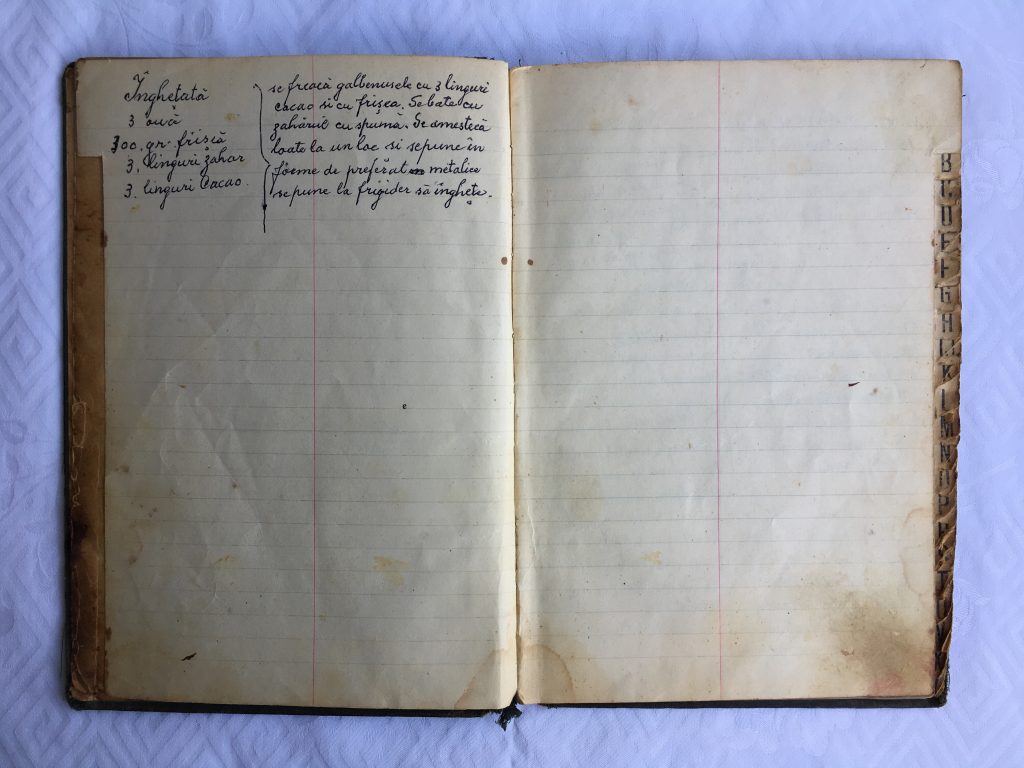 Înghețată
3 ouă
300. gr. frișcă
3. linguri zahar
3. linguri Cacao.
se freacă galbenusele cu 3 linguri
cacao si cu frișca. Se bate cu
zahărul cu spumă. Se amestecă
toate la un loc si se pune în
forme de preferat metalice
se pune la frigider să înghețe.
B
C
D
E
F
G
H
K
M
N